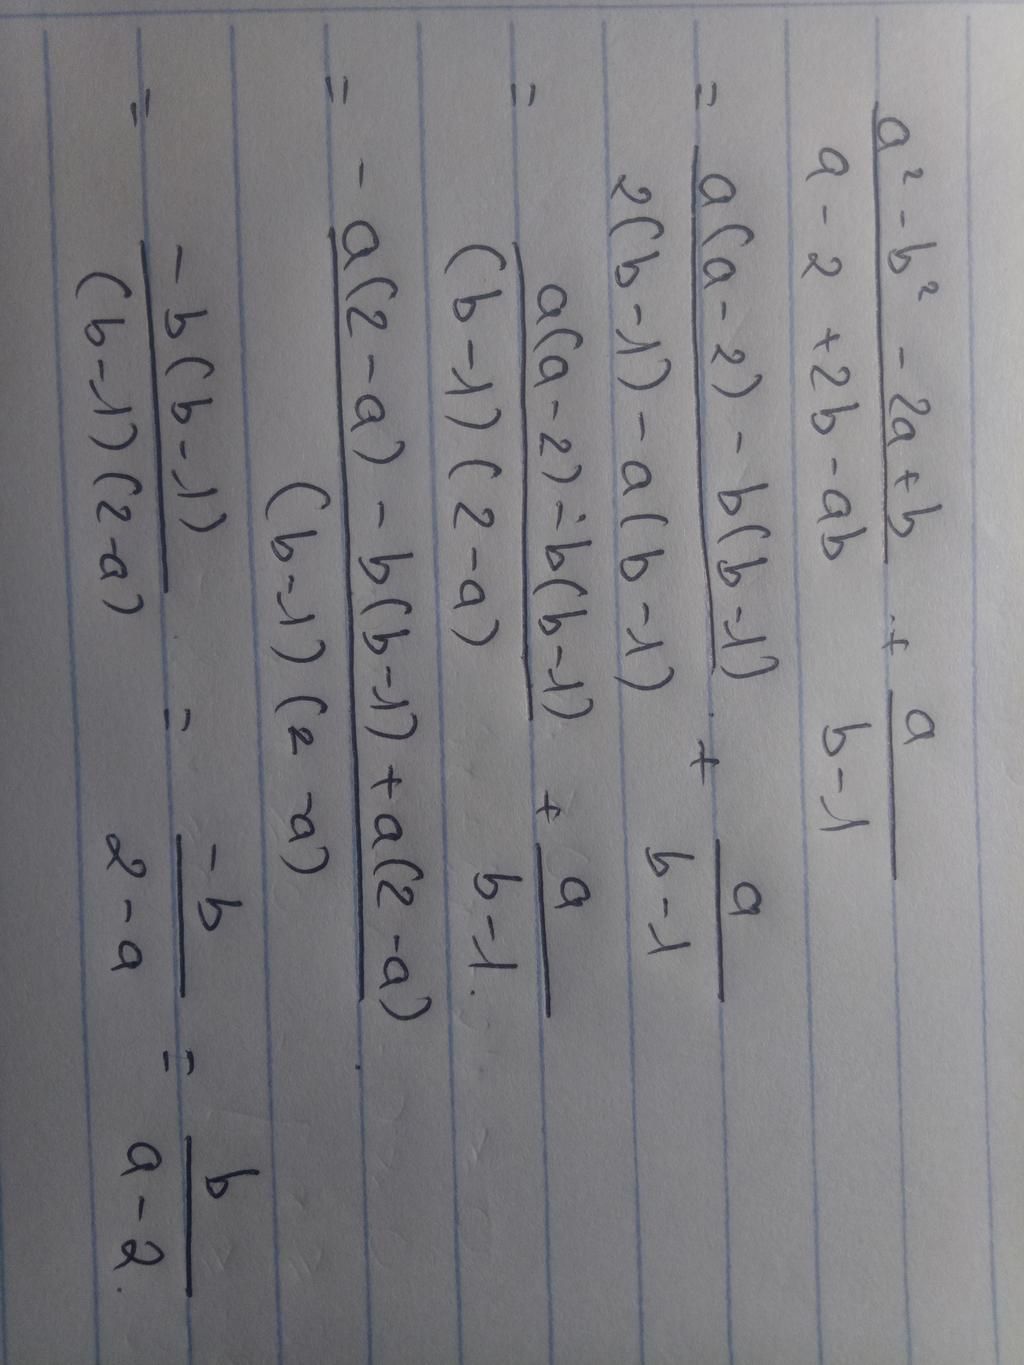 a² - b² - 2a + b / a - 2 + 2b - ab + a / b - 1
= a(a - 2) - b(b - 1) / 2(b - 1) - a(b - 1) + a / b - 1
= a(a - 2) - b(b - 1) / (b - 1)(2 - a) + a / b - 1.
= - a(2 - a) - b(b - 1) + a(2 - a) / (b - 1)(2 - a)
= - b(b - 1) / (b - 1)(2 - a) = - b / 2 - a = b / a - 2.